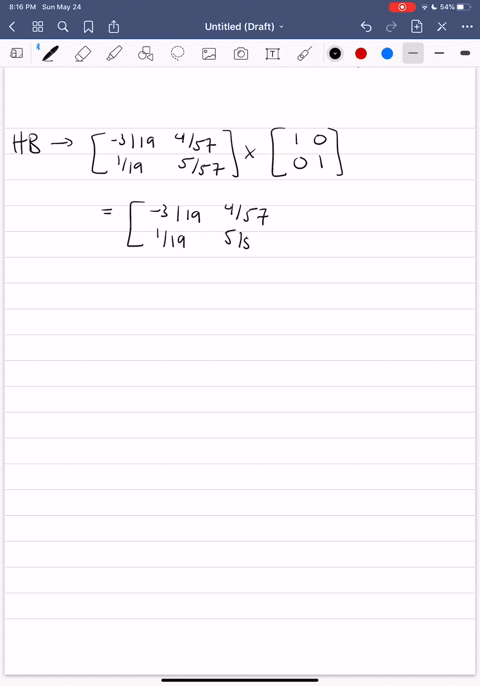 8:16 PM Sun May 24
54%
Untitled (Draft)
HB → [ -3/19 4/57 ] × [ 1 0 ]
[ 1/19 5/57 ] [ 0 1 ]
= [ -3/19 4/57
1/19 5/5